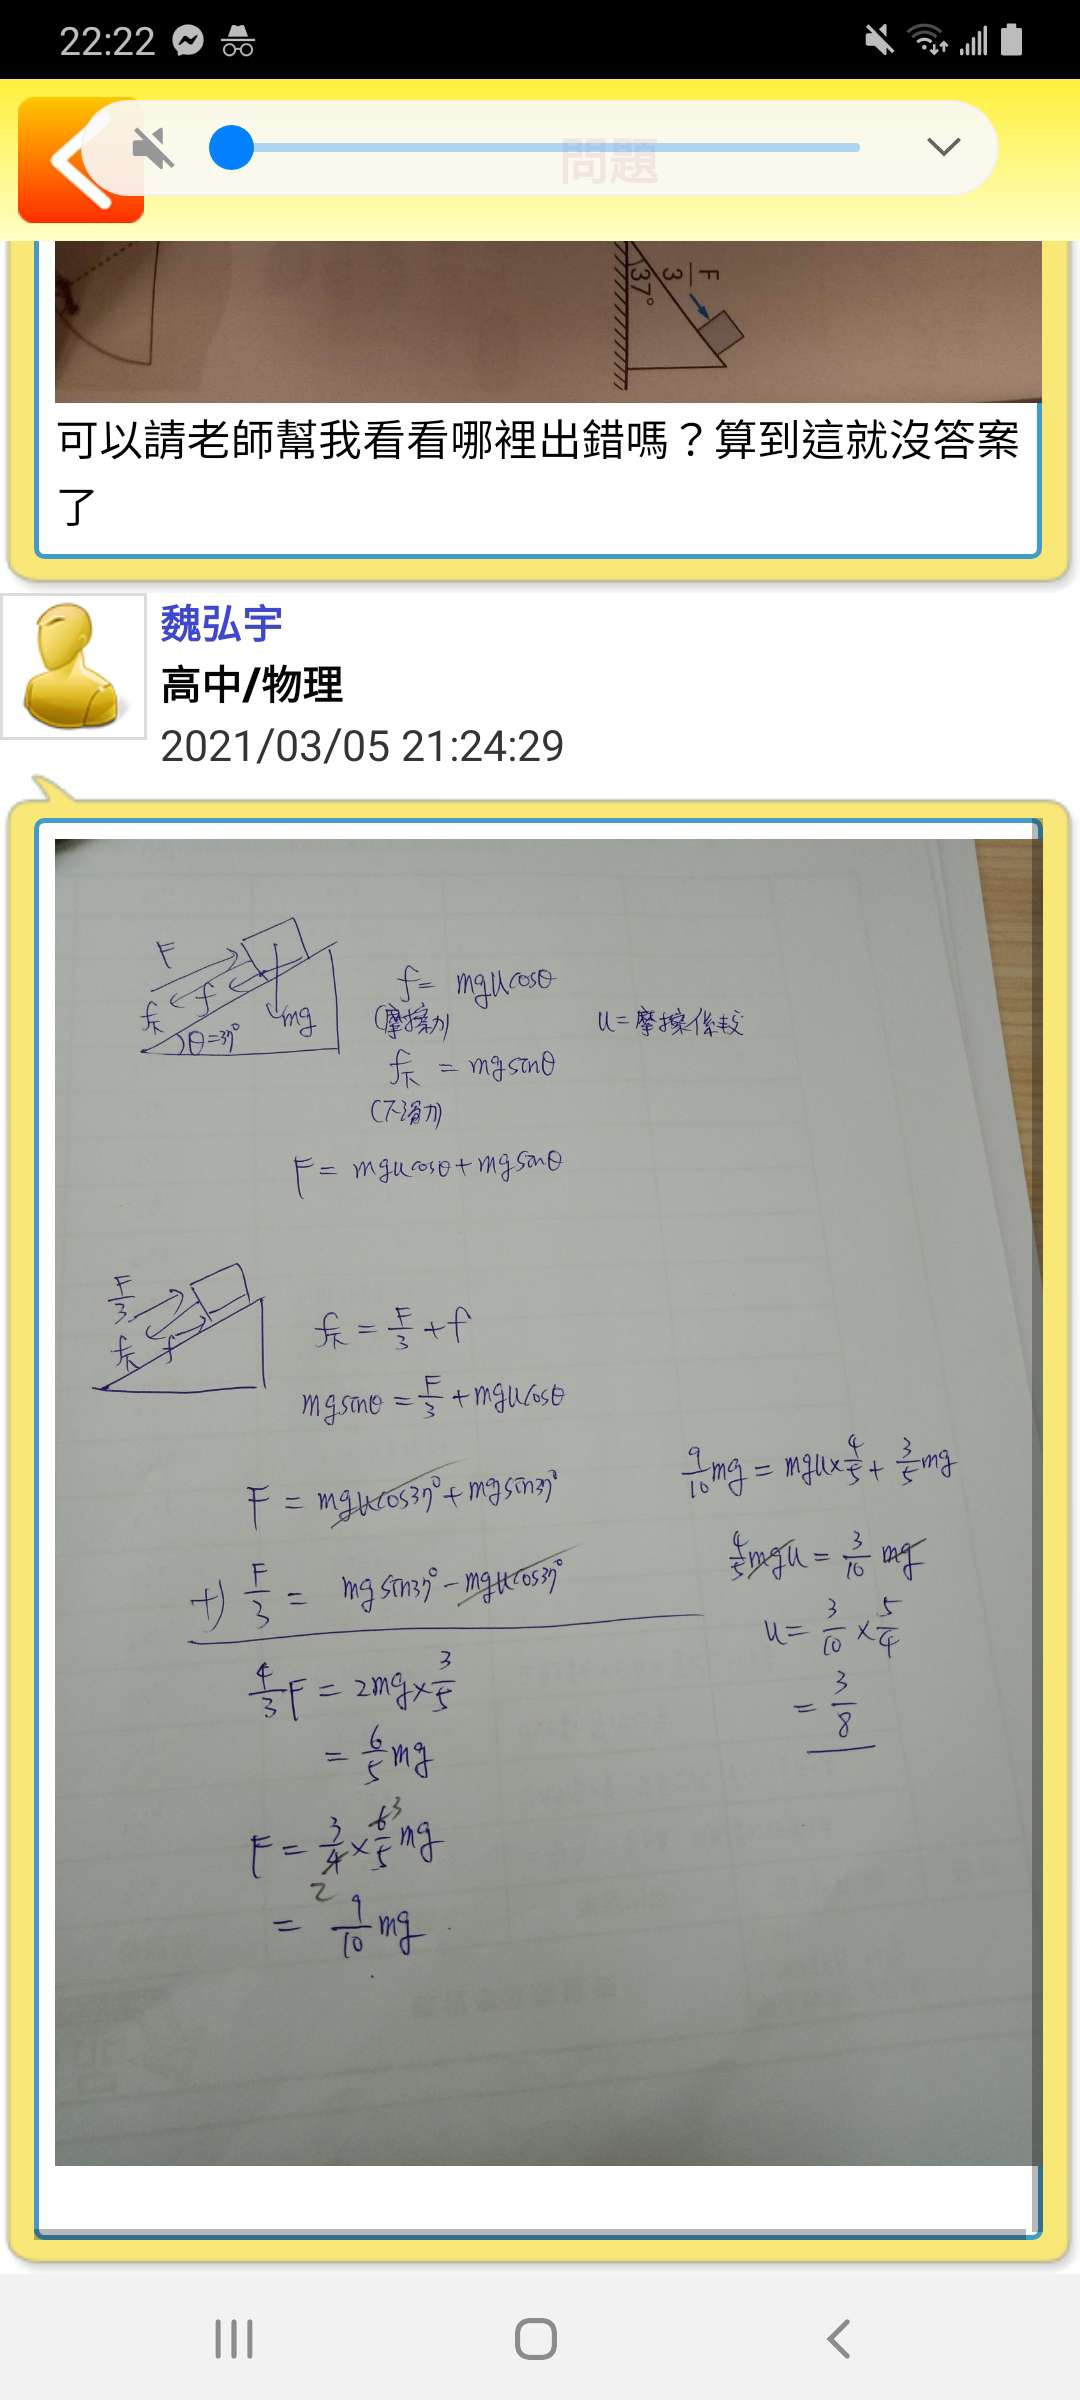 22:22
問題
F
3
37°
可以請老師幫我看看哪裡出錯嗎？算到這就沒答案
了
魏弘宇
高中/物理
2021/03/05 21:24:29
F
f下 f
mg
θ=37°
f= mgucosθ
(摩擦力)
u=摩擦係數
f下 = mgsinθ
(下滑力)
F= mgucosθ+mgsinθ
F/3
f下 f
f下 = F/3 + f
mgsinθ = F/3 + mgucosθ
F = mgucos37°+mgsin37°
+) F/3 = mgsin37°-mgucos37°
4/3 F = 2mg×3/5
= 6/5 mg
F = 3/4 × 6/5 mg
2 3
= 9/10 mg
9/10 mg = mgu×4/5 + 3/5 mg
4/5 mgu = 3/10 mg
u= 3/10 × 5/4
= 3/8